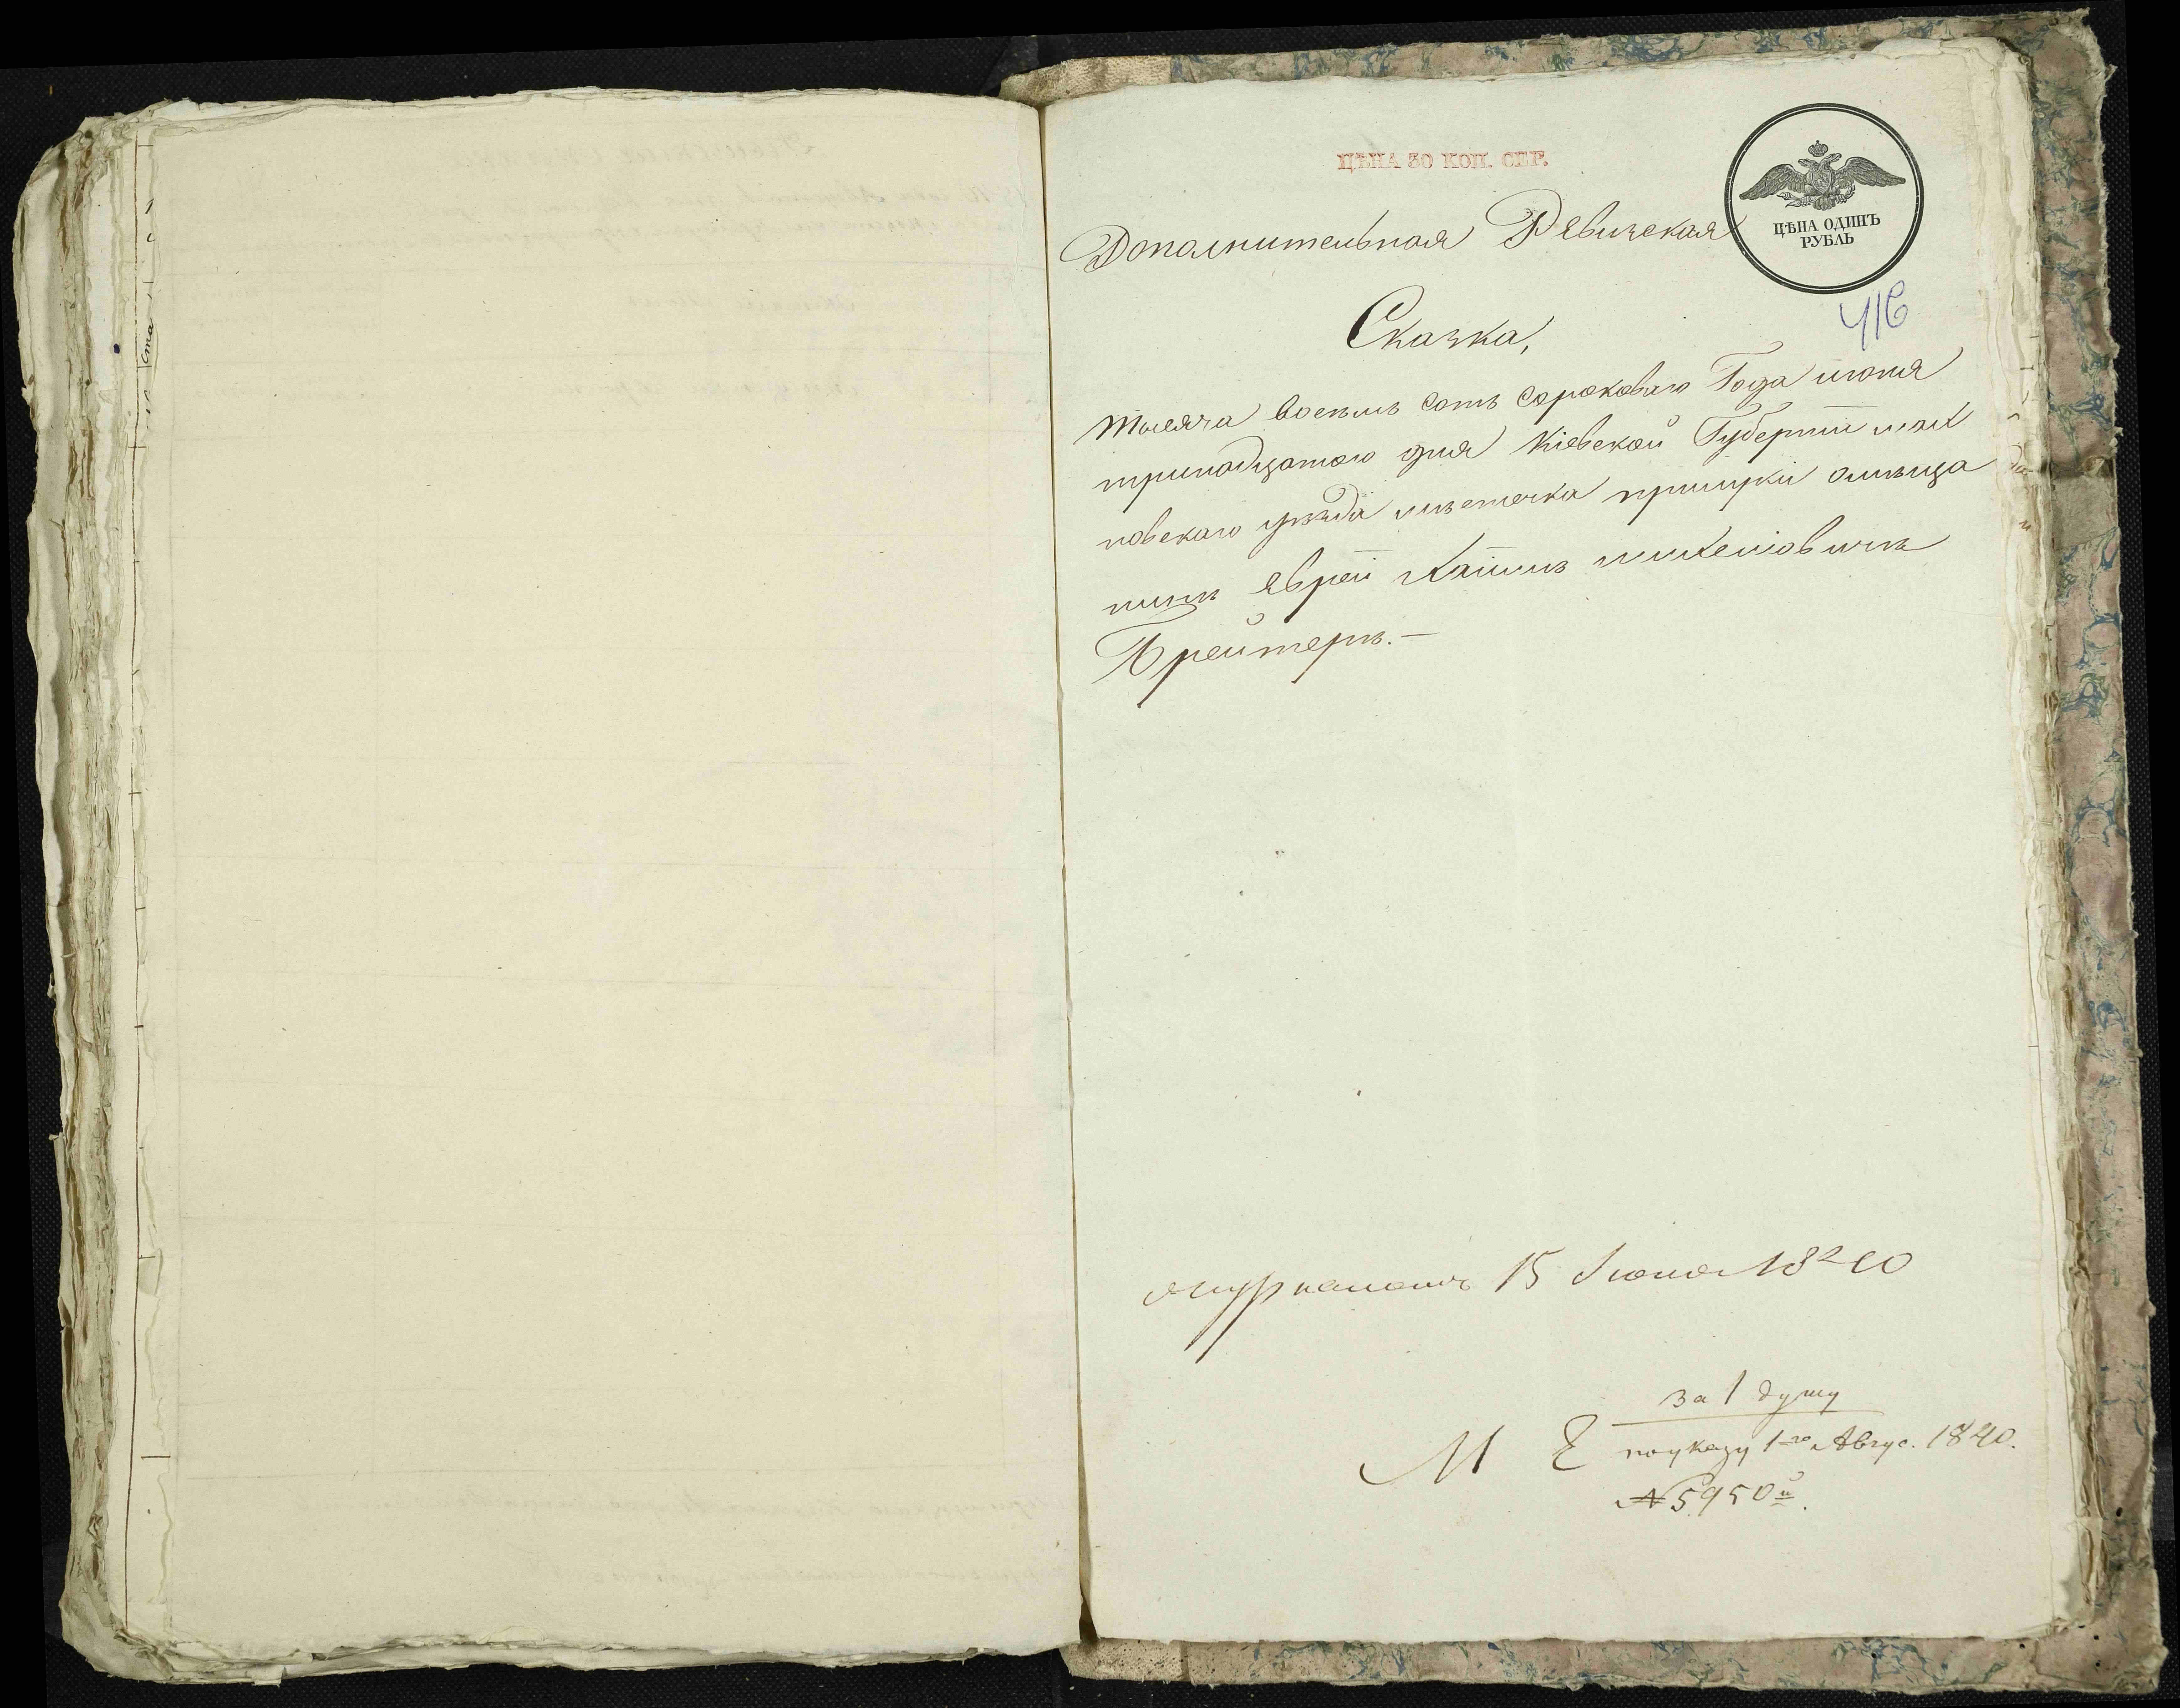 ЦѢНА 30 КОП. СЕР.
ЦѢНА ОДИНЪ
РУБЛЬ
Дополнительная Ревизская
416
Сказка,
тысяча восемь сотъ сороковаго Года июня
тринадцатого дня Кіевской Губерніи мах
новскаго уезда местечка прилуки
еврей Хаимъ
Брейтеръ.—
15 Іюня 1840
за 1 душу
по указу 1го Авгус. 1840.
М Е
№ 5950й.